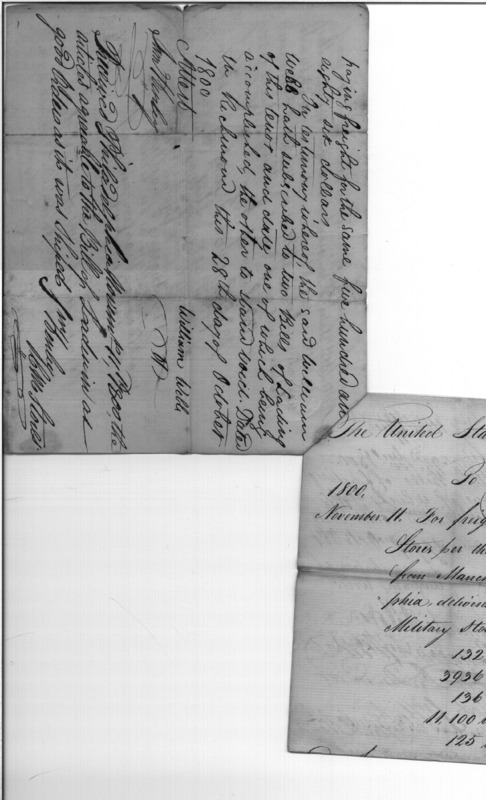 paying freight for the same five hundred and
eighty six dollars
In testimony whereof the said William
Webb hath subscribed to two Bills of Lading
of this tenor and date, one of which being
accomplished, the other to stand void. Dated
in Richmond this 28th day of October
1800
William Webb
Attest
Received Philadelphia November 11, 1800, the
articles agreeable to this Bill of Lading in as
good Order as it was shipped
The United Sta
To
1800.
November 11. For freig
Stores per th
from Manch
phia, deliver
Military Sto
132
3936
136
11.100
125